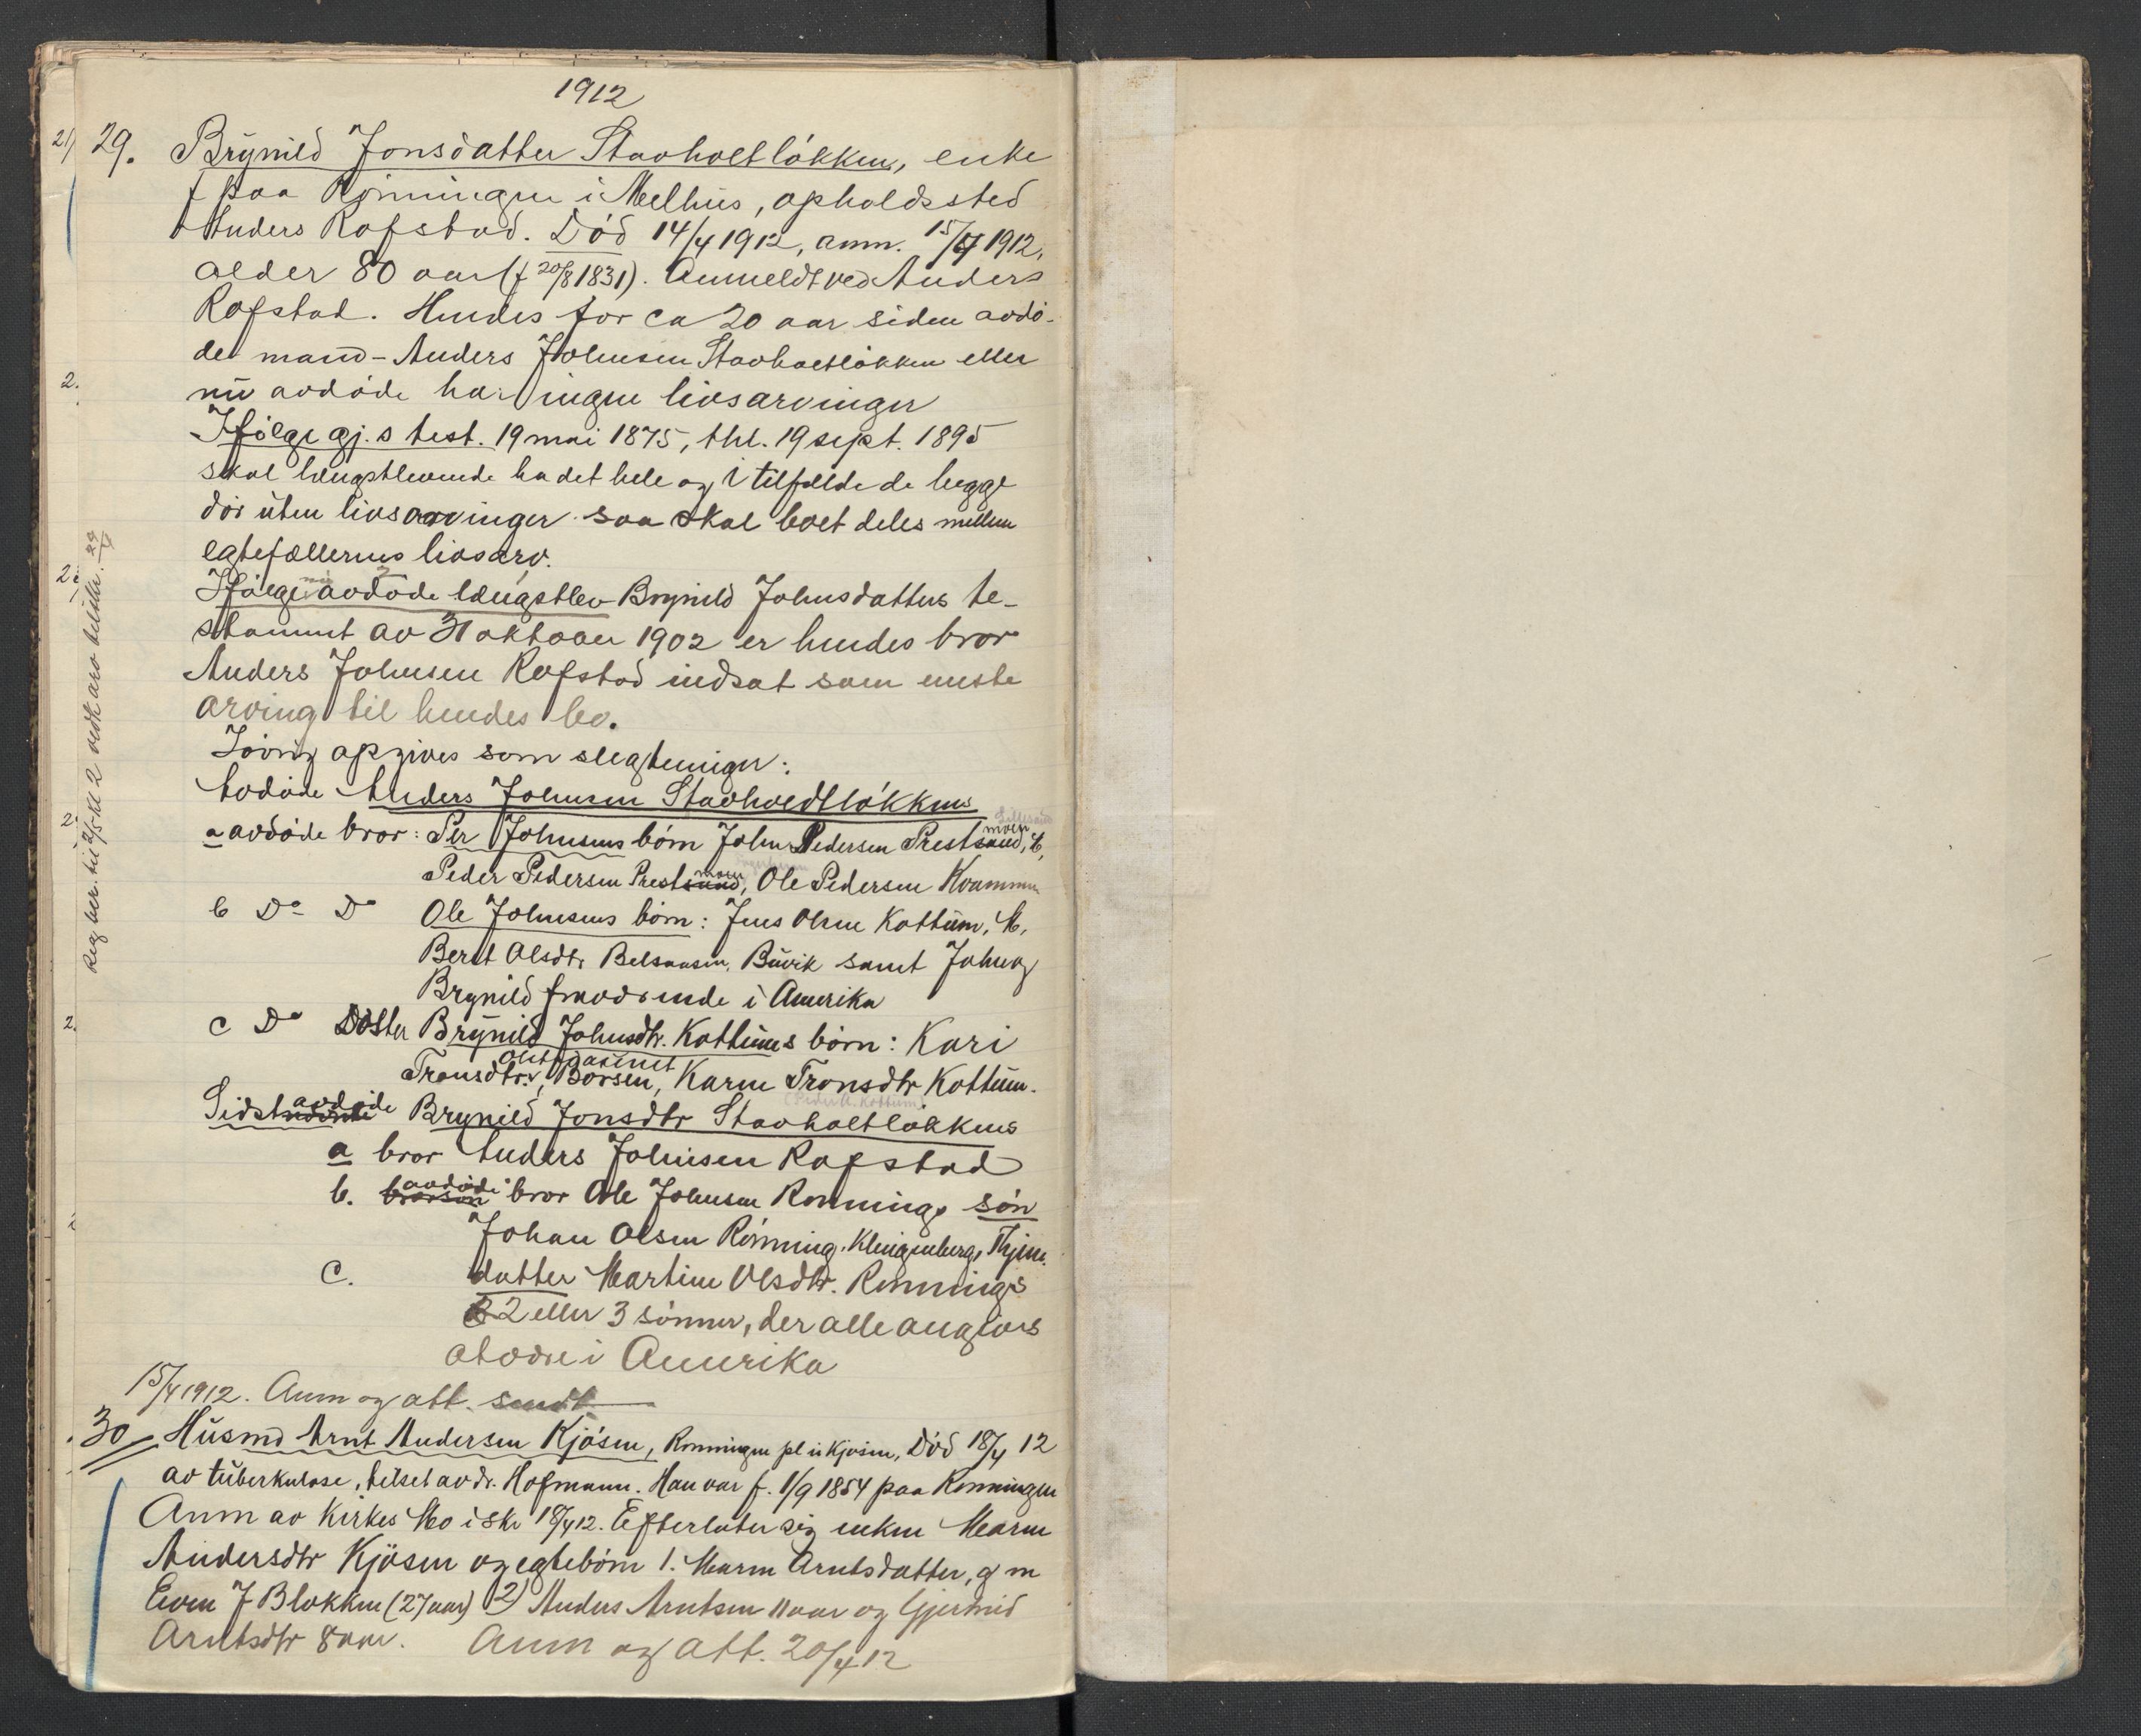 1912
29. Brynild Jonsdatter Stavholtløkken, enke
f paa Rønningen i Melhus, opholdssted
Anders Rofstad. Død 14/4 1912, anm. 15/4 1912,
alder 80 aar (f 20/8 1831). Anmeldt ved Anders
Rofstad. Hendes for ca 20 aar siden avdø-
de mand - Anders Johnsen Stavholtløkken eller
nu avdøde har ingen livsarvinger
Ifølge gj.s test. 19 mai 1875, thl. 19 sept. 1895
skal længstlevende ha det hele og i tilfælde de begge
dør uten livsarvinger saa skal boet deles mellem
egtefællernes livsarv.
Ifølge nu avdøde længstlev Brynild Johnsdatters te-
stament av 31 oktober 1902 er hendes bror
Anders Johnsen Rofstad indsat som eneste
arving til hendes bo.
Iøvrig opgives som slegtninger:
Avdøde Anders Johnsen Stavholdtløkkens
a avdøde bror: Per Johnsens børn John Pedersen Prestmoen, B,
Peder Pedersen Prestmoen, Ole Pedersen Kvammen
b Do Do Ole Johnsens børn: Jens Olsen Kottum, M.
Berit Olsdtr Belsaasen, Buvik samt John og
Brynild fraværende i Amerika
c Do Dóster Brynild Johnsdtr. Kottums børn: Kari
Tronsdtr., Børsen, Karen Tronsdtr Kottum.
(Peder A. Kottum)
Sidst avdøde Brynild Jonsdtr Stavholtløkkens
a bror Anders Johnsen Rofstad
b. avdøde bror Ole Johnsen Rønnings søn
Johan Olsen Rønning. Klingenberg, Thjem.
c. datter Martine Olsdtr. Rønnings
2 eller 3 sønner, der alle angives
at være i Amerika
15/4 1912. Anm og att. sendt
30 Husmd Arnt Andersen Kjøsen, Rønningen pl u Kjøsen, Død 18/4 12
av tuberkulose, tilset av dr. Hofmann. Han var f. 1/9 1854 paa Rønningen
Anm av Kirkes Mo i skr 18/4 12. Efterlater sig enken Maren
Andersdtr Kjøsen og egtebørn 1. Maren Arntsdatter, g m
Even J Blokken (27 aar) 2) Anders Arntsen 11 aar og Gjertrud
Arntsdtr 8 aar. Anm og Att. 20/4 12